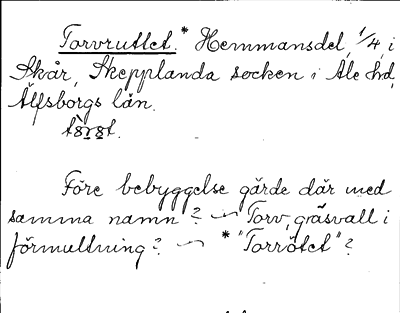 Torvrutlet.* Hemmansdel, 1/4, i
Skår, Skepplanda socken i Ale hd,
Älfsborgs län.
Före bebyggelse gärde där med
samma namn? ~ Torv, gräsvall i
förmultning? ~ * "Torrötet"?